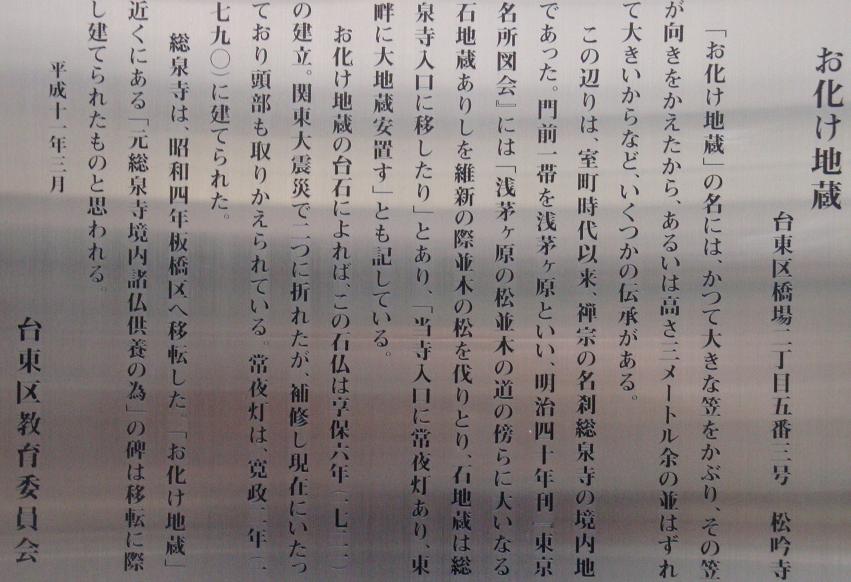 お化け地蔵
台東区橋場二丁目五番三号　松吟寺
「お化け地蔵」の名には、かつて大きな笠をかぶり、その笠
が向きをかえたから、あるいは高さ三メートル余の並はずれ
て大きいからなど、いくつかの伝承がある。
この辺りは、室町時代以来、禅宗の名刹総泉寺の境内地
であった。門前一帯を浅茅ヶ原といい、明治四十年刊『東京
名所図会』には「浅茅ヶ原の松並木の道の傍らに大いなる
石地蔵ありしを維新の際並木の松を伐りとり、石地蔵は総
泉寺入口に移したり」とあり、「当寺入口に常夜灯あり、東
畔に大地蔵安置す」とも記している。
お化け地蔵の台石によれば、この石仏は享保六年（一七二一）
の建立。関東大震災で二つに折れたが、補修し現在にいたっ
ており頭部も取りかえられている。常夜灯は、寛政二年（一
七九〇）に建てられた。
総泉寺は、昭和四年板橋区へ移転した。「お化け地蔵」
近くにある「元総泉寺境内諸仏供養の為」の碑は移転に際
し建てられたものと思われる。
平成十一年三月
台東区教育委員会